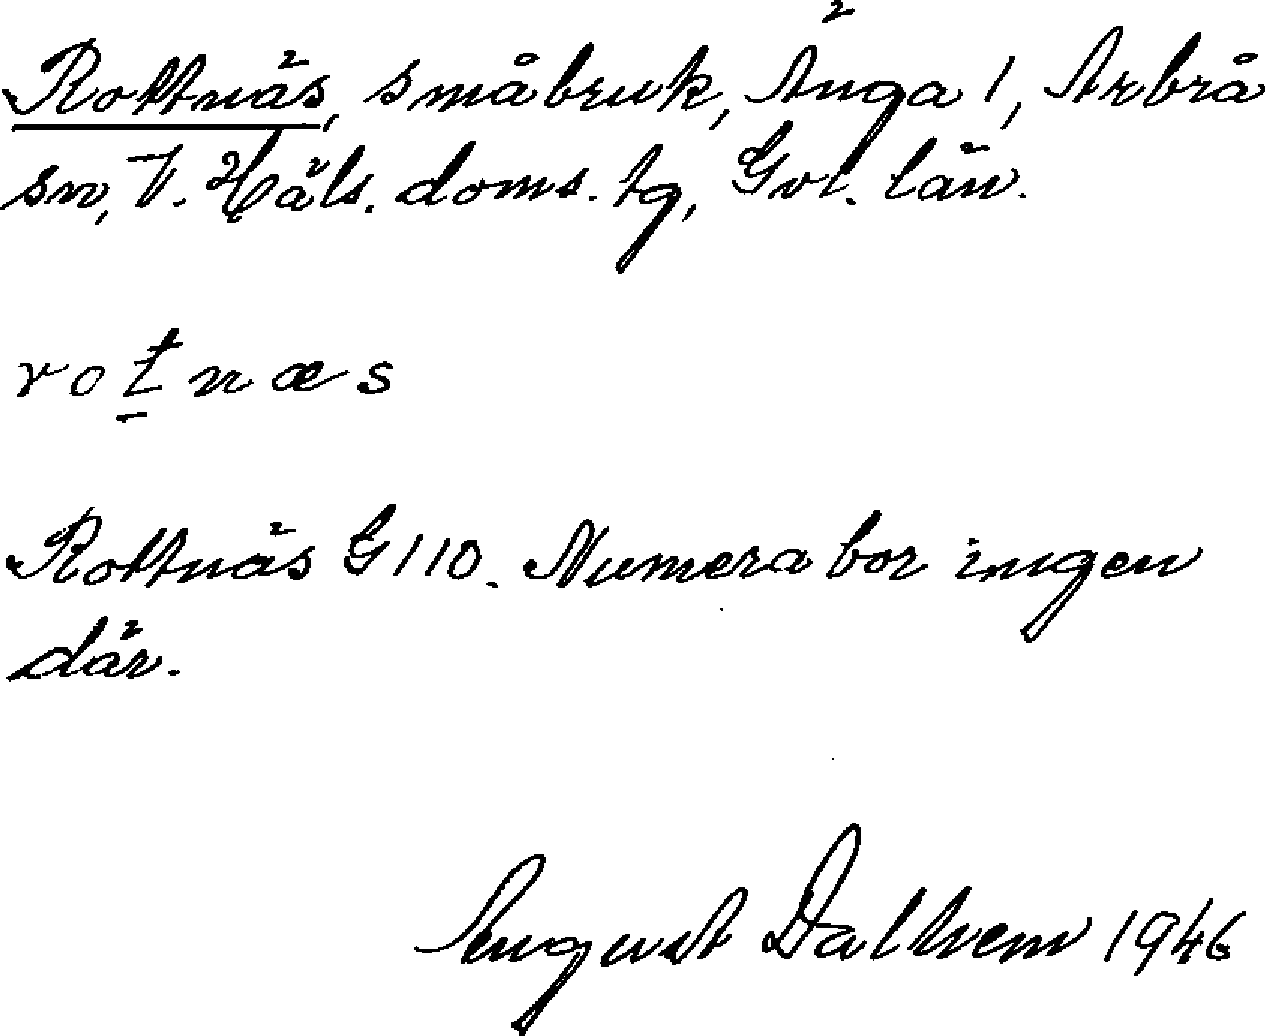 Rottnäs, småbruk, Änga 1, Arbrå
sn, V. Häls. doms. tg, Gvl. län.
rotnæs
Rottnäs G110. Numera bor ingen
där.
August Dalhem 1946